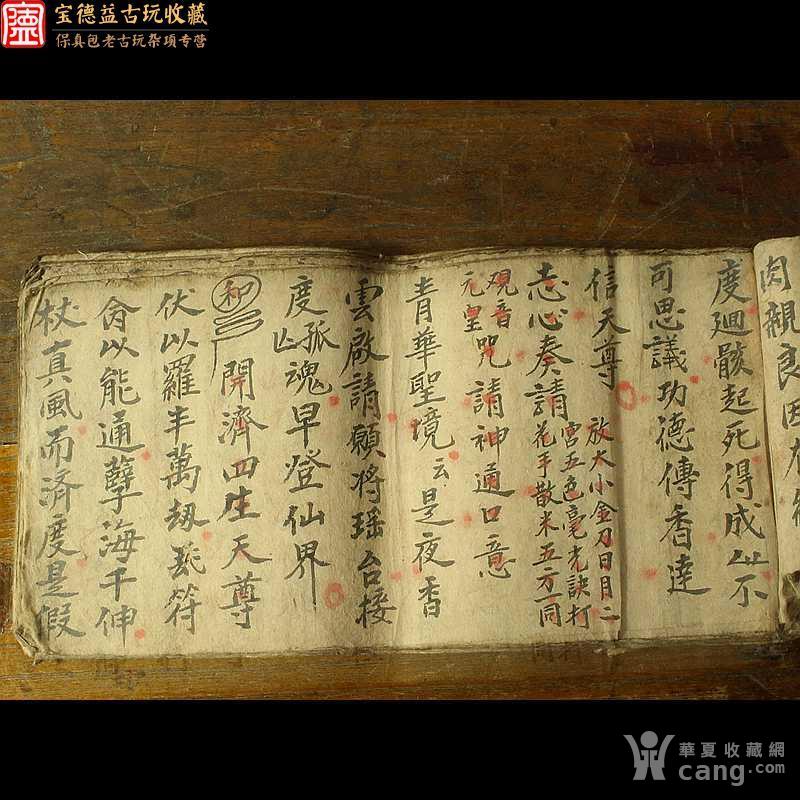 宝德益古玩收藏
保真包老古玩杂项专营
肉親良因
度廻骸起死得成 不
可思議功德傳香達
信天尊
放大小金刀日月二
宮五色毫光訣打
志心奏請
花手散米五方一同
观音
元皇咒請神通口意
青華聖境云是夜香
雲啟請願將瑶台接
度孤魂早登仙界
和
開濟四生天尊
伏以羅丰萬劫 符
以能通孽海千
杖真風而济度是假
華夏收藏網
cang.com